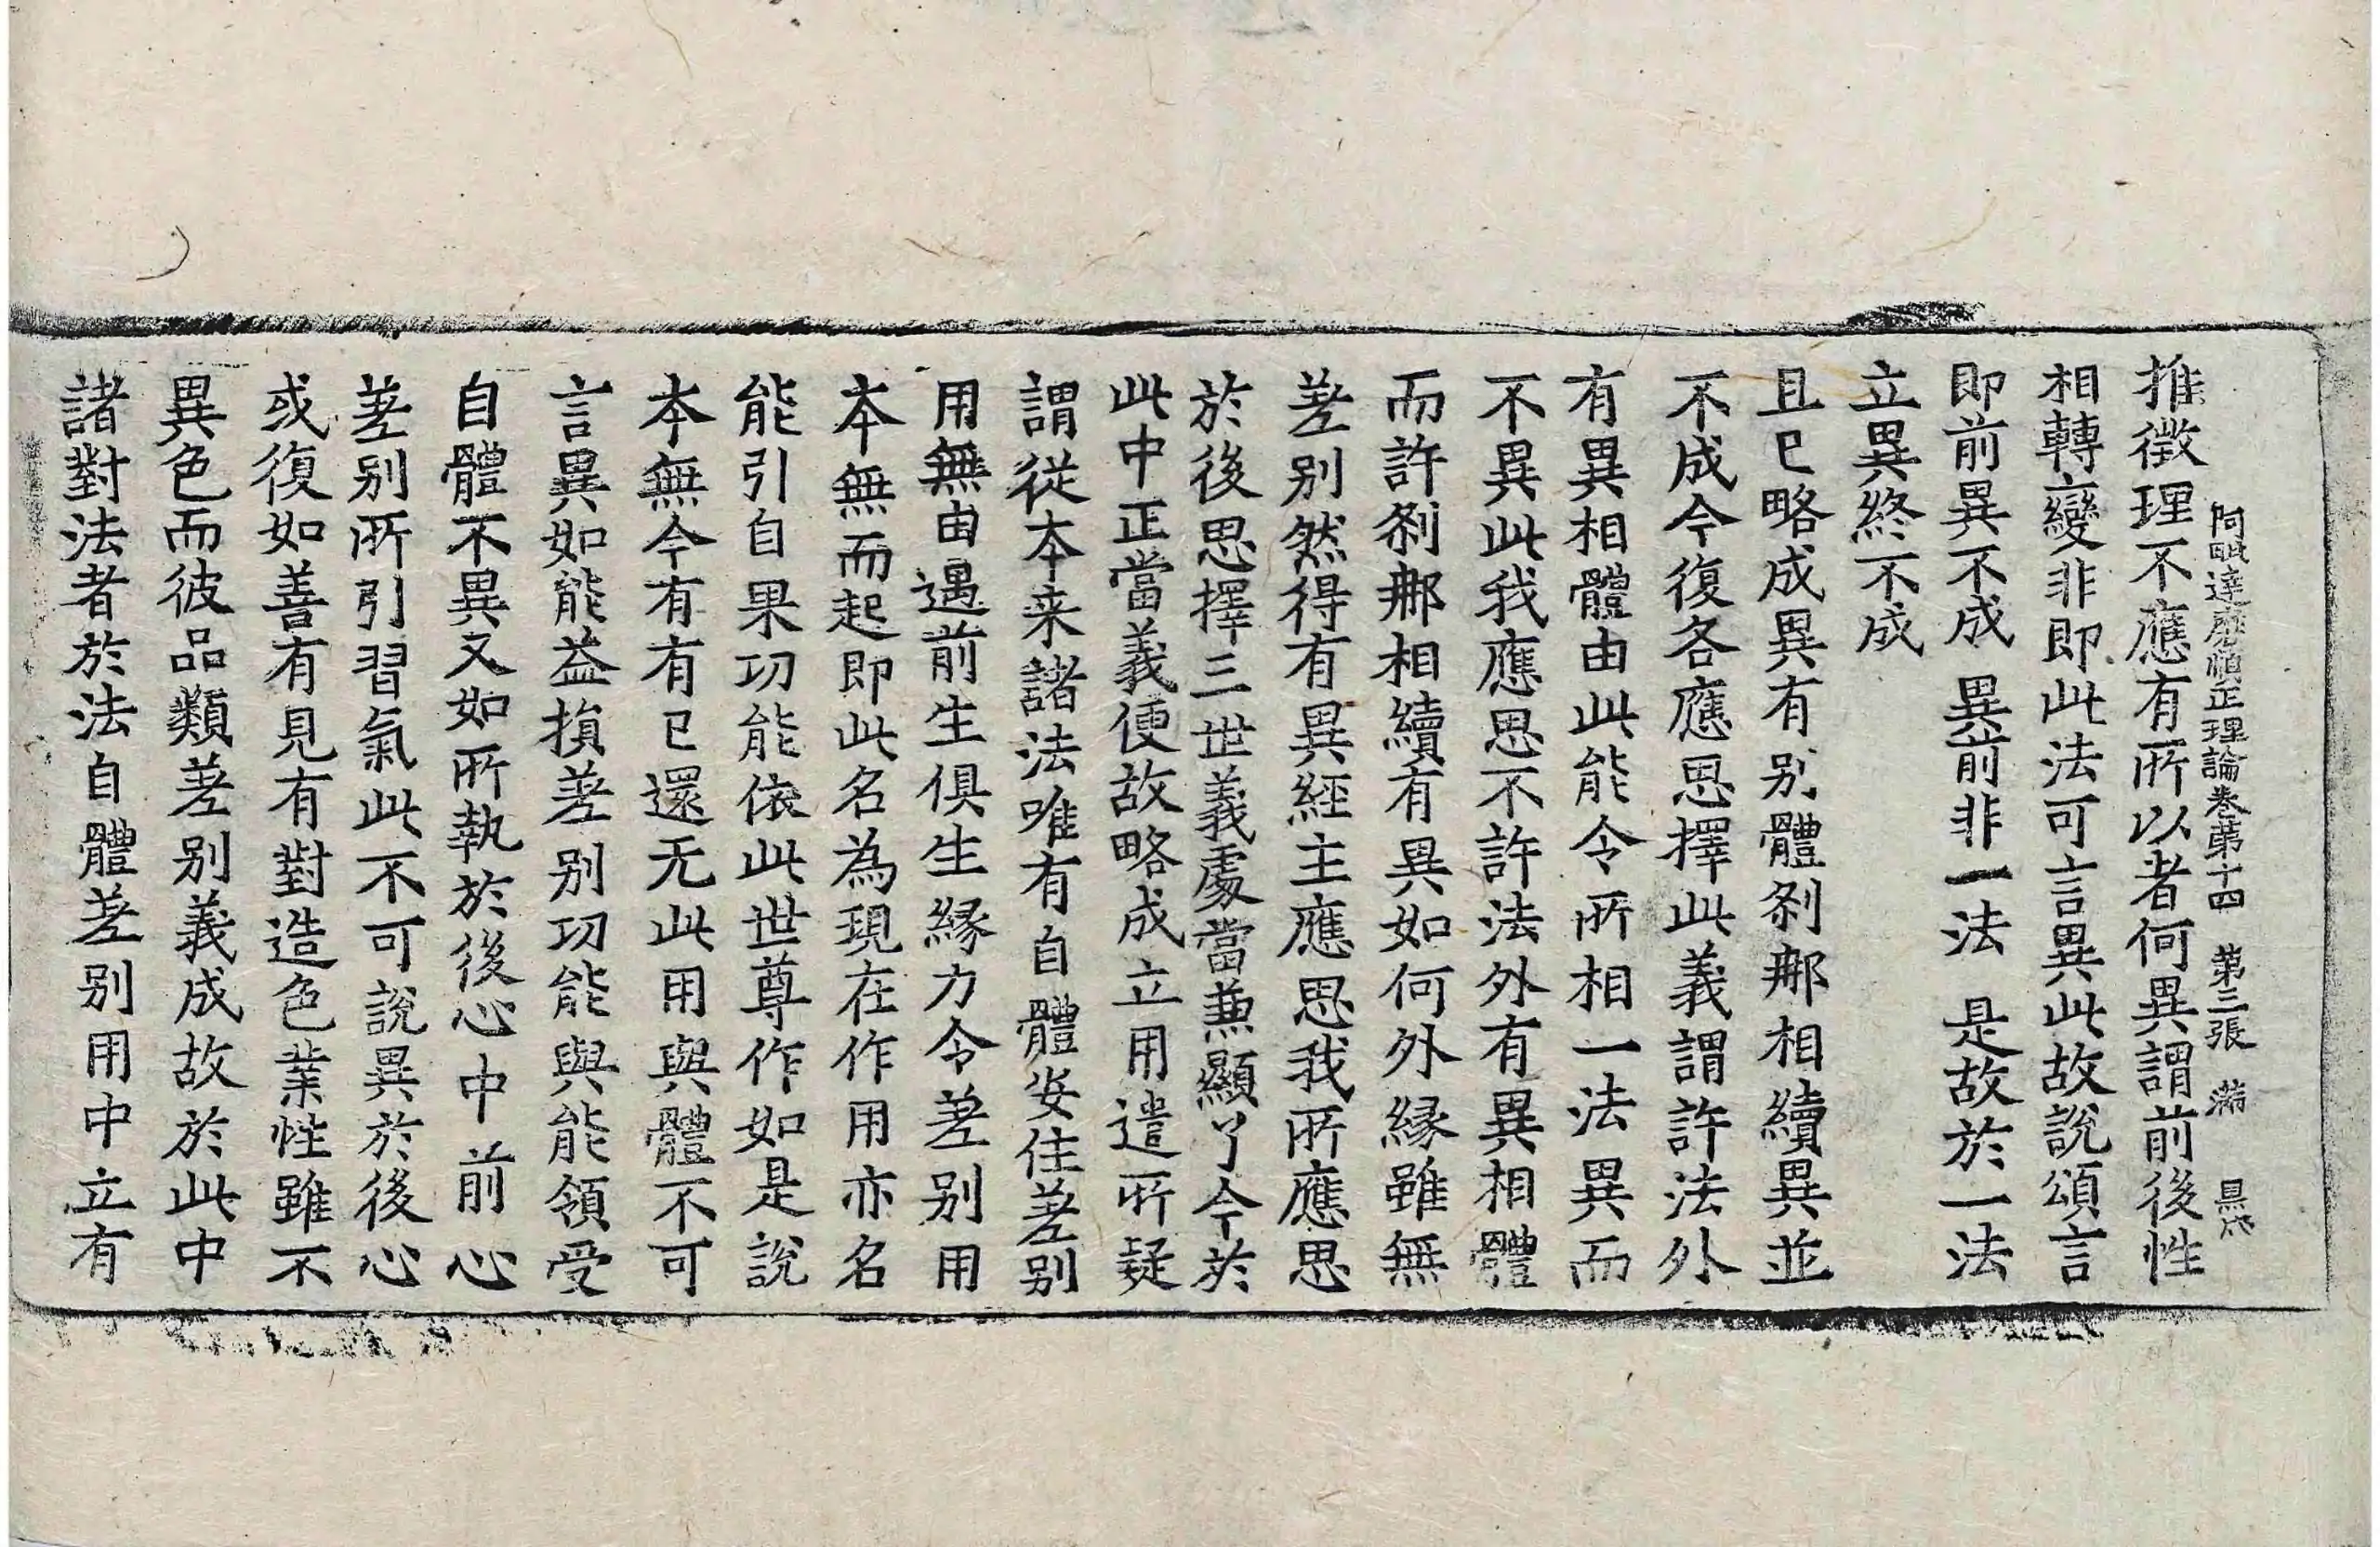 推徵理不應有所以者何異謂前後性
阿毗達磨順正理論卷第十四 第三張 滿
相轉變非即此法可言異此故說頌言
即前異不成 異前非一法 是故於一法
立異終不成
且已略成異有別體刹那相續異並
不成今復各應思擇此義謂許法外
有異相體由此能令所相一法異而
不異此我應思不許法外有異相體
而許刹那相續有異如何外緣雖無
差別然得有異經主應思我所應思
於後思擇三世義處當兼顯了今於
此中正當義便故略成立用遣所疑
謂從本来諸法唯有自體安住差別
用無由遇前生俱生緣力令差別用
本無而起即此名為現在作用亦名
能引自果功能依此世尊作如是說
本無今有有已還无此用與體不可
言異如能益損差別功能與能領受
自體不異又如所執於後心中前心
差別所引習氣此不可說異於後心
或復如善有見有對造色業性雖不
異色而彼品類差別義成故於此中
諸對法者於法自體差別用中立有